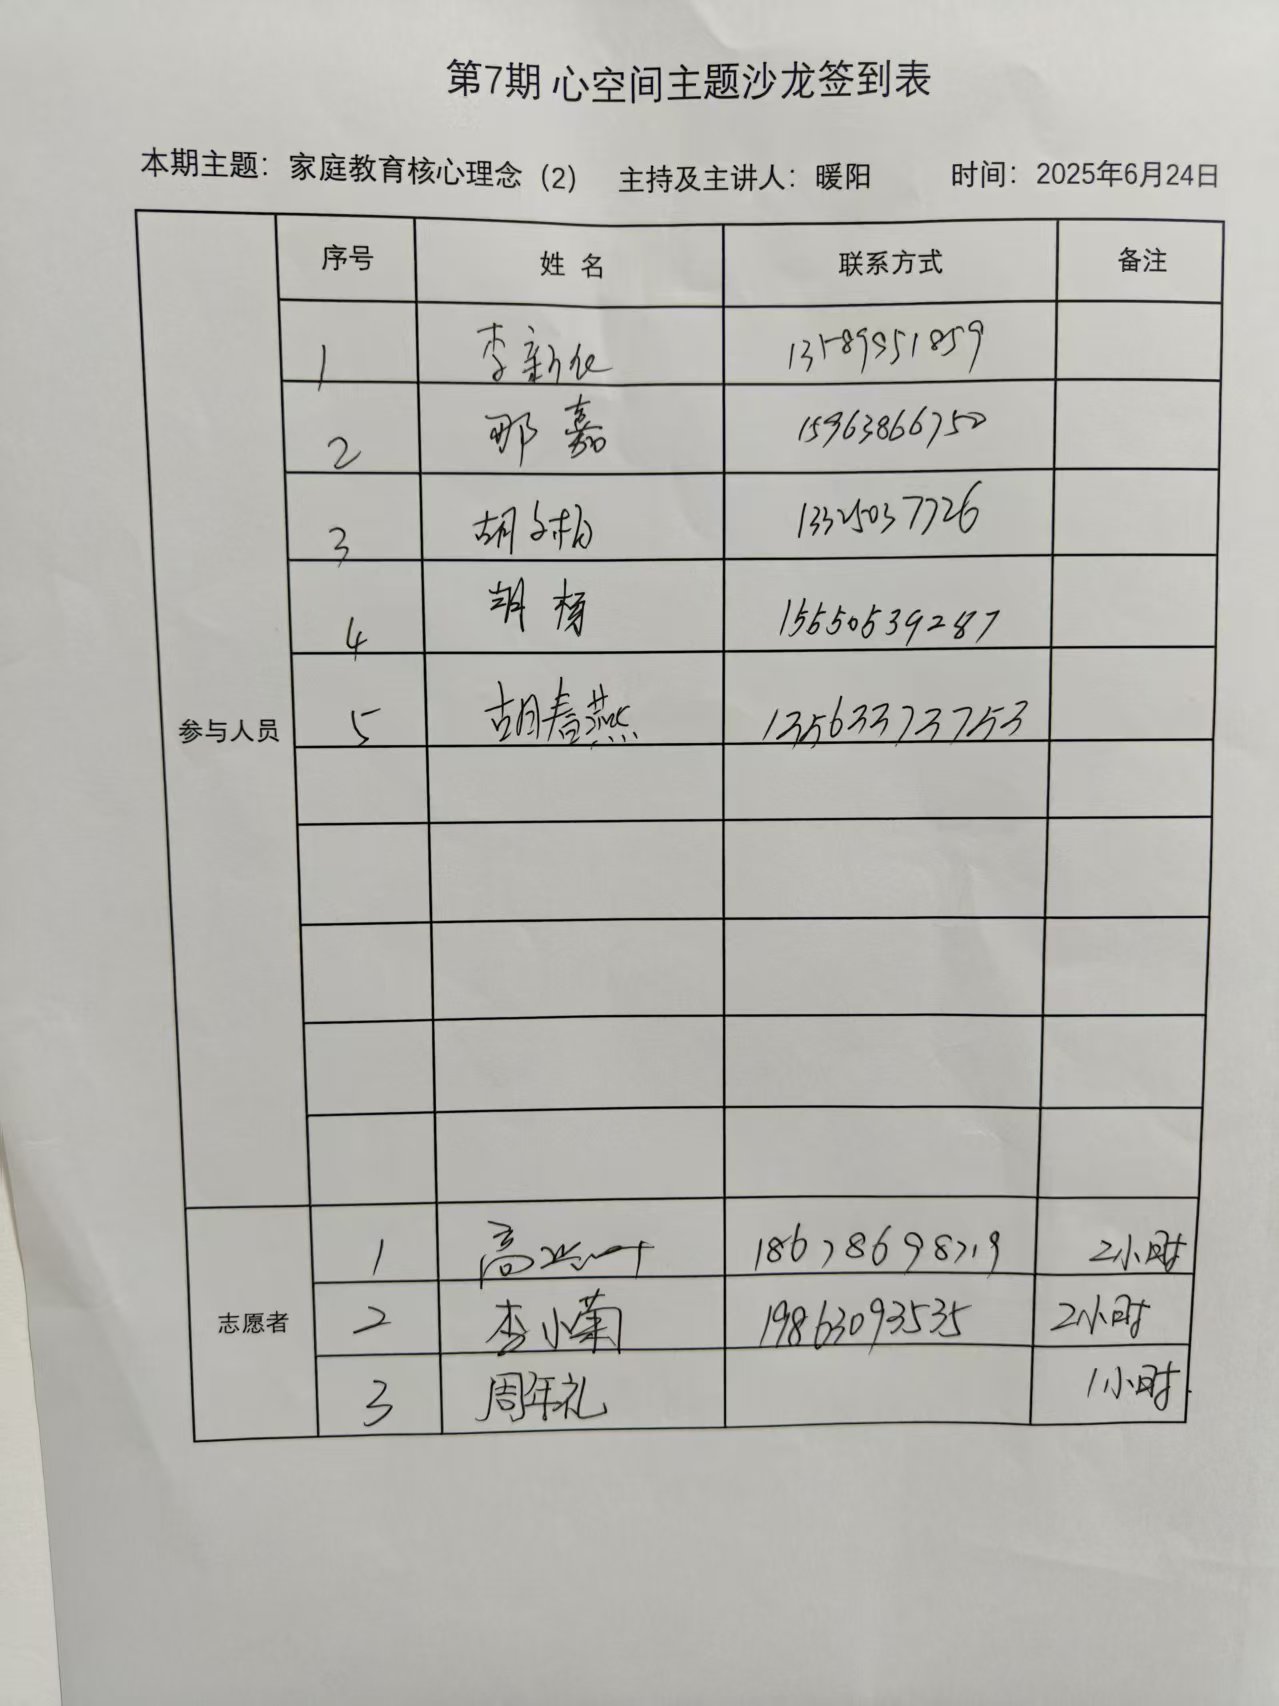 第7期 心空间主题沙龙签到表
本期主题：家庭教育核心理念（2） 主持及主讲人：暖阳 时间：2025年6月24日
序号 姓名 联系方式 备注
参与人员
1 李新化 13589951859
2 那嘉 15963866750
3 胡 13325037726
4 胡杨 15550539287
5 胡春燕 13563373753
志愿者
1 高 18678698719 2小时
2 李小菊 19863093535 2小时
3 周年礼 1小时